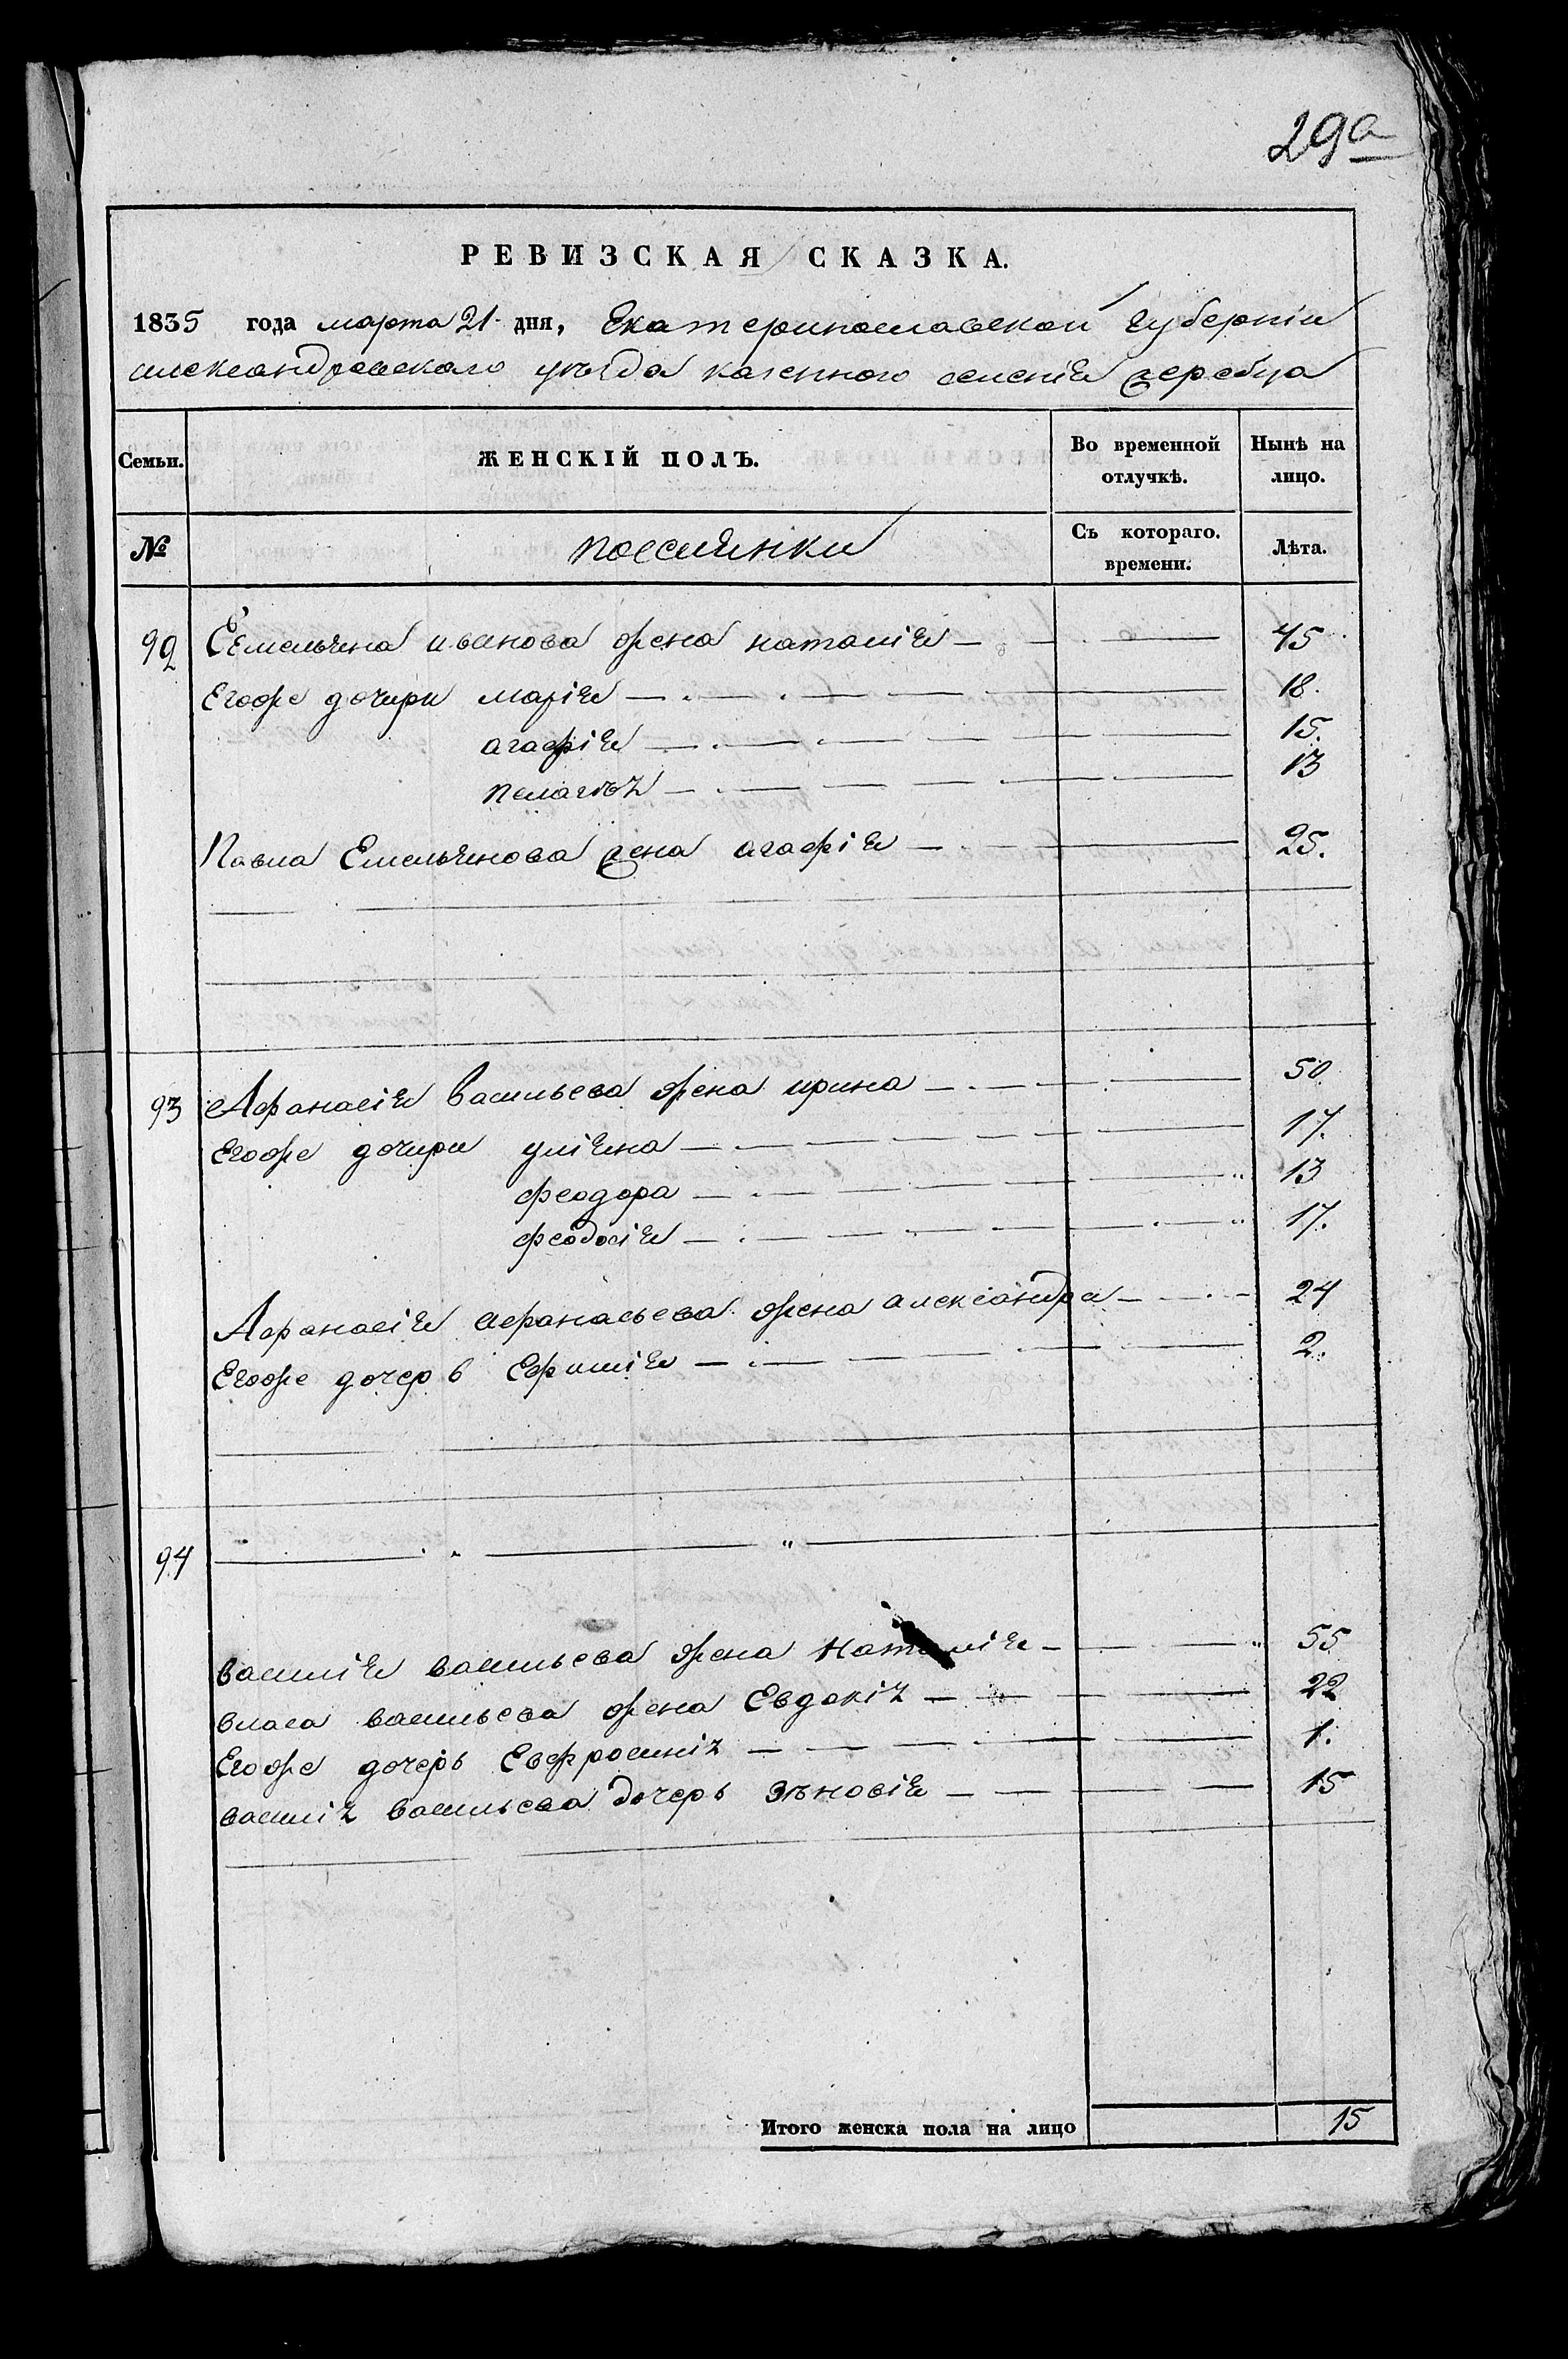 29а
РЕВИЗСКАЯ СКАЗКА.
1835 года марта 21 дня, Екатеринославской губерніи
александровского уѣзда казенного селенія жеребца
Семьи. ЖЕНСКІЙ ПОЛЪ. Во временной отлучкѣ. Нынѣ на лицо.
№ поселянки Съ котораго. времени. Лѣта.
92 Емельяна иванова жена наталія 45
Егоже дочири марія 18.
агафія 15.
пелагѣя 13
Павла Емельянова жена агафія 25.
93 Афанасія васильева жена ирина 50
Егоже дочири уліяна 17.
феодора 13
феодосія 17.
Афанасія афанасьева жена александра 24
Егоже дочерь Ефимія 2.
94
василія васильева жена наталія 55
власа васильева жена Евдокія 22
Егоже дочерь Евфросинія 1.
василія васильева дочерь зѣновія 15
Итого женска пола на лицо 15